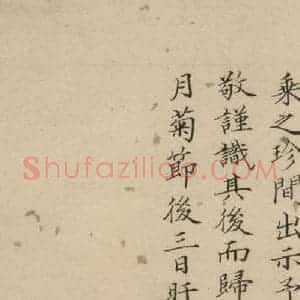 乘之珍間出示予
敬謹識其後而歸
月菊節後三日盱
Shufaziliao.com